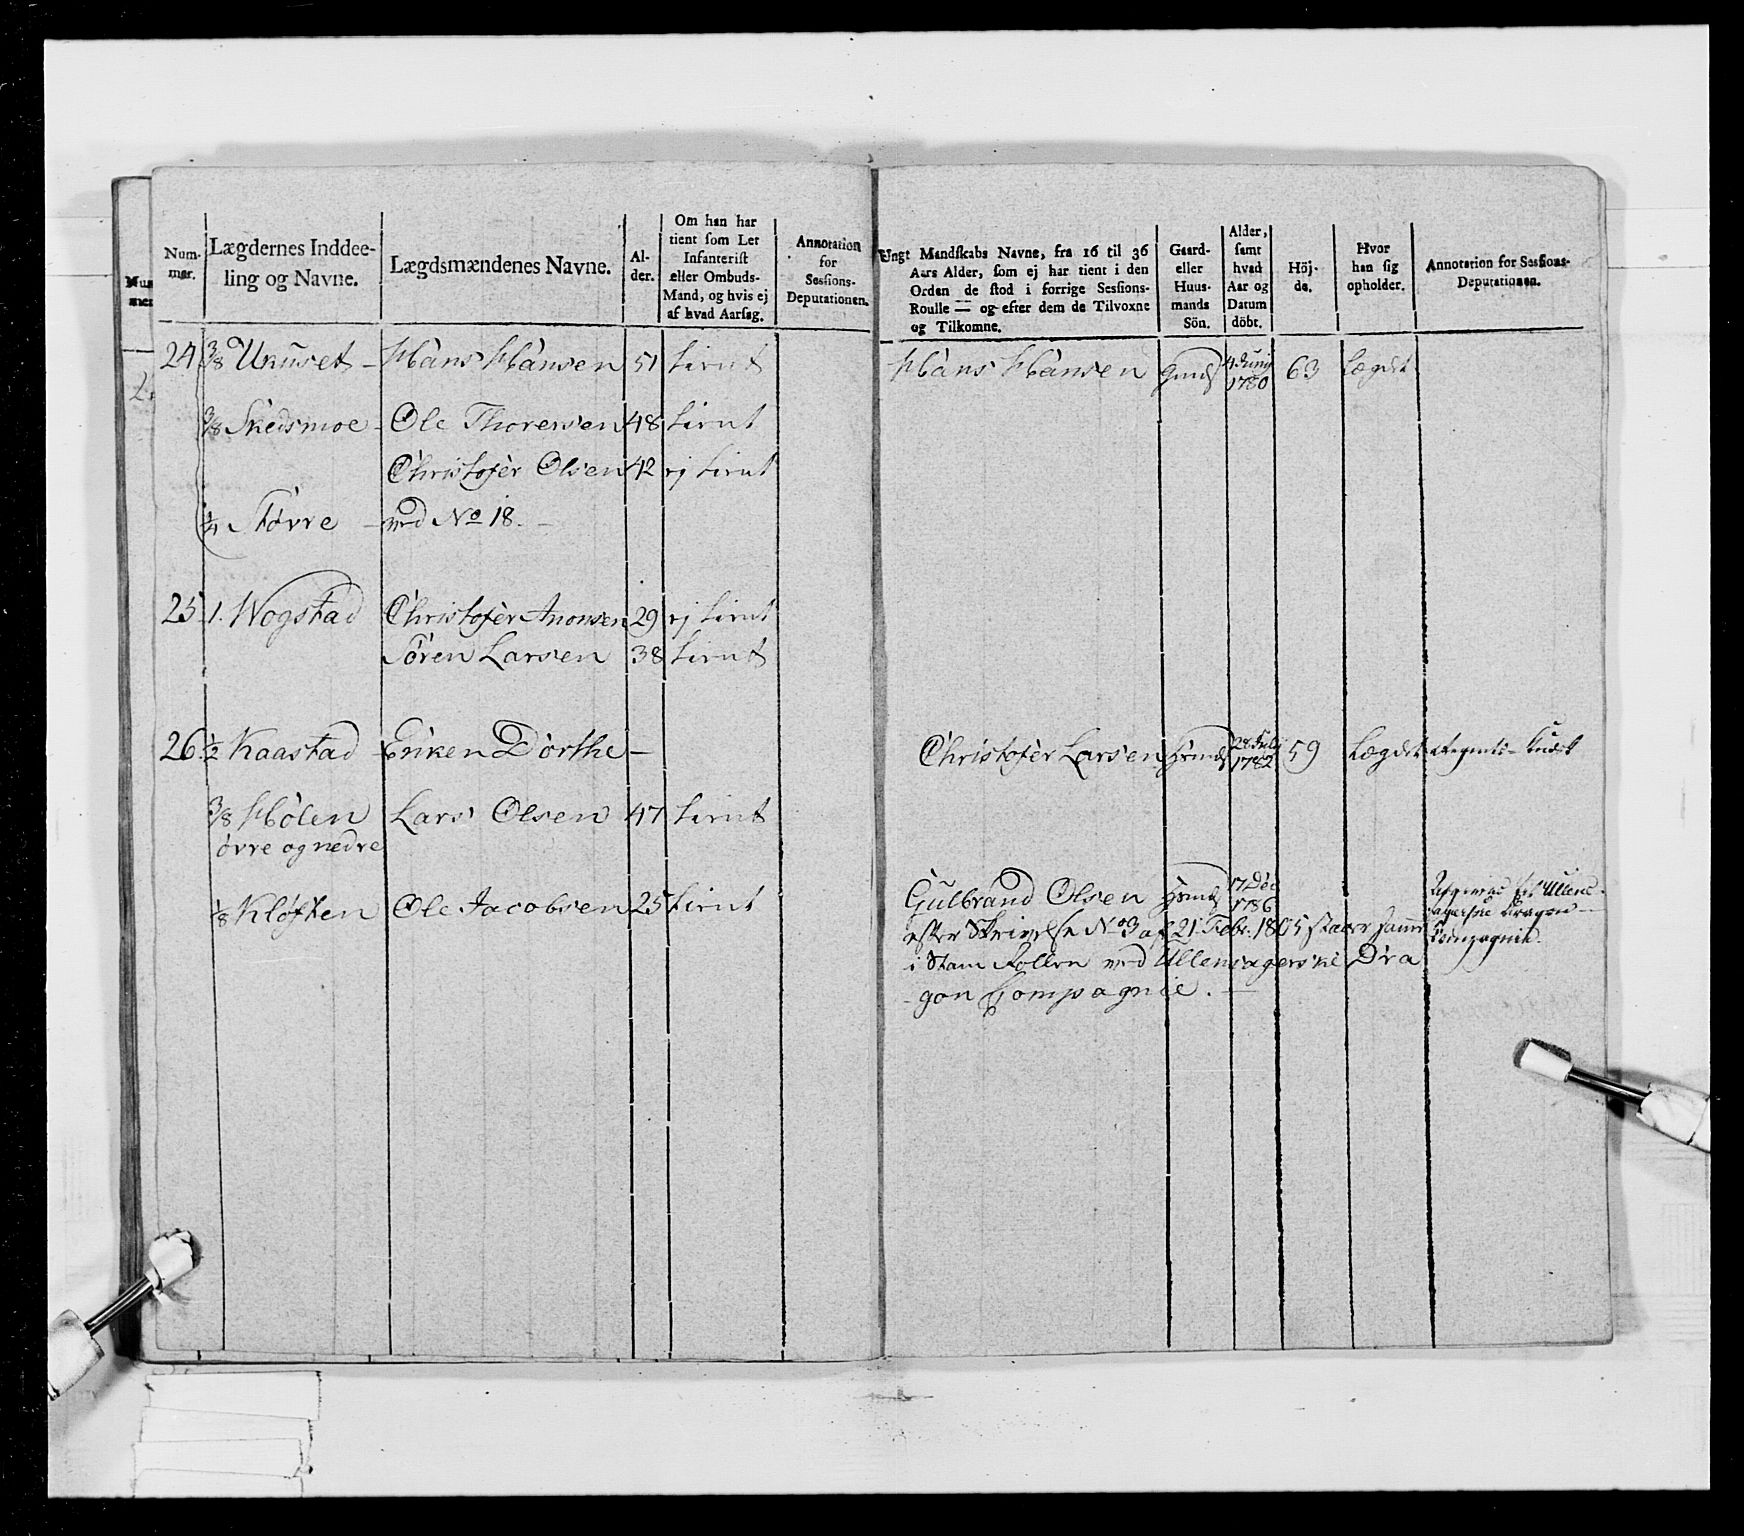 Num-
mer.
Lægdernes Inddee-
ling og Navne.
Lægdsmændenes Navne.
Al-
der.
Om han har
tient som Let
Infanterist
eller Ombuds-
Mand, og hvis ej
af hvad Aarsag.
Annotation
for
Sessions-
Deputationen.
Ungt Mandskabs Navne, fra 16 til 36
Aars Alder, som ej har tient i den
Orden de stod i forrige Sessions-
Roulle — og efter dem de Tilvoxne
og Tilkomne.
Gaard-
eller
Huus-
mands
Sön.
Alder,
samt
hvad
Aar og
Datum
döbt.
Höj-
de.
Hvor
han sig
opholder.
Annotation for Sessions-
Deputationen.
24 3/8 Ukuset - Hans Hansen 51 tient Hans Hansen Gmds 4 Junij 1780 63 Lægdet
3/8 Skedsmoe - Ole Thoresen 48 tient
Christofer Olsen 42 ej tient
1/4 Større - ved No 18. -
25 1. Wogstad Christofer Anonsen 29 ej tient
Sören Larsen 38 tient
26. 1/2 Kaastad Enken Dorthe - Christofer Larsen Hsmds 28 Julj 1782 59 Lægdet Regmts- Kudsk
3/8 Hölen Lars Olsen 47 tient
övre og nedre
1/8 Klöften Ole Jacobsen 25 tient Gulbrand Olsen Hsmds 17 Dec 1786 Afgiven til Ullens-
agerske Dragon-
Compagnie.
efter Skrivelse No 3 af 21 Febr. 1805 staaer samme
i Stam Rollen ved Ullensagerske Dra
-gon Compagnie. —